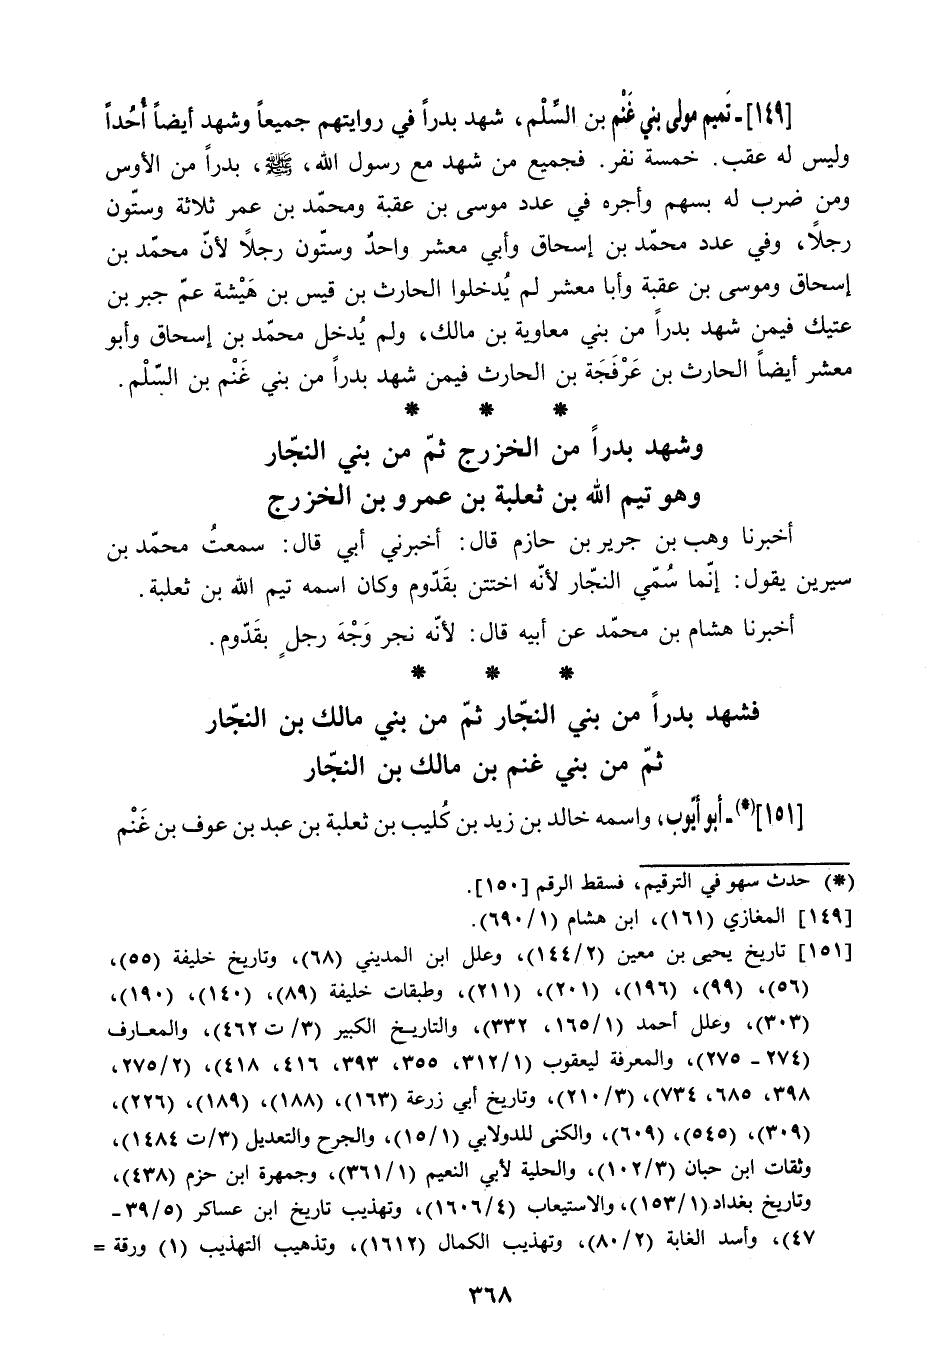 [١٤٩] ـ تَميم مولى بني غَنْم بن السِّلْم، شهد بدراً في روايتهم جميعاً وشهد أيضاً أُحُداً
وليس له عقب. خمسة نفر. فجميع من شهد مع رسول الله، ﷺ، بدراً من الأوس
ومن ضرب له بسهم وأجره في عدد موسى بن عقبة ومحمّد بن عمر ثلاثة وستّون
رجلاً، وفي عدد محمّد بن إسحاق وأبي معشر واحدٌ وستّون رجلاً لأنّ محمّد بن
إسحاق وموسى بن عقبة وأبا معشر لم يُدخلوا الحارث بن قيس بن هَيْشة عمّ جبر بن
عتيك فيمن شهد بدراً من بني معاوية بن مالك، ولم يُدخل محمّد بن إسحاق وأبو
معشر أيضاً الحارث بن عَرْفَجَة بن الحارث فيمن شهد بدراً من بني غَنْم بن السِّلْم.
* * *
وشهد بدراً من الخزرج ثمّ من بني النجّار
وهو تيم الله بن ثعلبة بن عمرو بن الخزرج
أخبرنا وهب بن جرير بن حازم قال: أخبرني أبي قال: سمعتُ محمّد بن
سيرين يقول: إنّما سُمّي النجّار لأنّه اختتن بقَدّوم وكان اسمه تيم الله بن ثعلبة.
أخبرنا هشام بن محمّد عن أبيه قال: لأنّه نجر وَجْهَ رجلٍ بقَدّوم.
* * *
فشهد بدراً من بني النجّار ثمّ من بني مالك بن النجّار
ثمّ من بني غنم بن مالك بن النجّار
[١٥١](*) ـ أبو أيّوب، واسمه خالد بن زيد بن كُليب بن ثعلبة بن عبد بن عوف بن غَنْم
(*) حدث سهو في الترقيم، فسقط الرقم [١٥٠].
[١٤٩] المغازي (١٦١)، ابن هشام (٦٩٠/١).
[١٥١] تاريخ يحيى بن معين (١٤٤/٢)، وعلل ابن المديني (٦٨)، وتاريخ خليفة (٥٥)،
(٥٦)، (٩٩)، (١٩٦)، (٢٠١)، (٢١١)، وطبقات خليفة (٨٩)، (١٤٠)، (١٩٠)،
(٣٠٣)، وعلل أحمد (١٦٥/١، ٣٣٢)، والتاريخ الكبير (٣/ ت ٤٦٢)، والمعارف
(٢٧٤ ـ ٢٧٥)، والمعرفة ليعقوب (٣١٢/١، ٣٥٥، ٣٩٣، ٤١٦، ٤١٨)، (٢٧٥/٢،
٣٩٨، ٦٨٥، ٧٣٤)، (٢١٠/٣)، وتاريخ أبي زرعة (١٦٣)، (١٨٨)، (١٨٩)، (٢٢٦)،
(٣٠٩)، (٥٤٥)، (٦٠٩)، والكنى للدولابي (١٥/١)، والجرح والتعديل (٣/ت ١٤٨٤)،
وثقات ابن حبان (١٠٢/٣)، والحلية لأبي النعيم (٣٦١/١)، وجمهرة ابن حزم (٤٣٨)،
وتاريخ بغداد (١٥٣/١)، والاستيعاب (١٦٠٦/٤)، وتهذيب تاريخ ابن عساكر (٣٩/٥ ـ
٤٧)، وأسد الغابة (٨٠/٢)، وتهذيب الكمال (١٦١٢)، وتذهيب التهذيب (١) ورقة =
٣٦٨